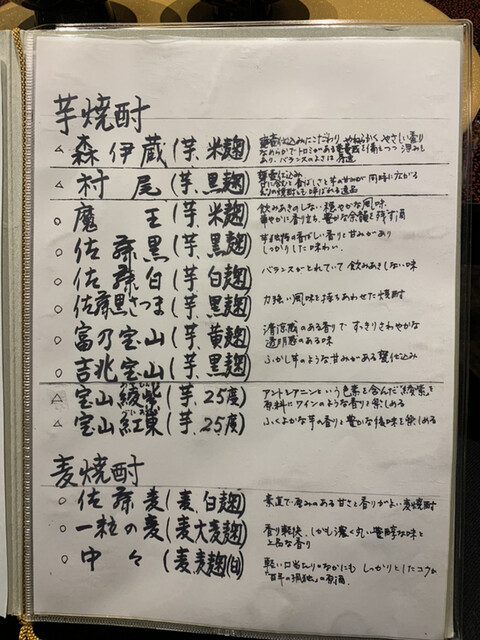 芋焼酎
△ 森伊蔵(芋、米麹)
甕壺仕込みにこだわり やわらかく やさしい香り
なめらかでトロミがある重量感と
あり、バランスのよさは
△ 村尾(芋、黒麹)
甕壺仕込み
口に含むと香ばしさと芋の甘みが 同時に広がる
○ 魔王(芋、米麹)
飲みあきのしない穏やかな風味
華やかに香り立ち、豊かな余韻を残す酒
○ 佐藤黒(芋、黒麹)
芋独特の香ばしい香りと甘みがあり
しっかりした味わい
○ 佐藤白(芋、白麹)
バランスがとれていて 飲みあきしない味
○ 佐藤黒さつま(芋、黒麹)
力強い風味を持ちあわせた焼酎
○ 富乃宝山(芋、黄麹)
清涼感のある香りで すっきりさわやかな
透明感のある味
○ 吉兆宝山(芋、黒麹)
ふかし芋のような甘みがある甕仕込み
△ 宝山綾紫(芋、25度)
アントシアニンという色素を含んだ「綾紫」を
原料にワインのような香りを楽しめる
△ 宝山紅東(芋、25度)
ふくよかな芋の香りと豊かな後味を楽しめる
麦焼酎
○ 佐藤麦(麦、白麹)
素直で厚みのある甘さと香りがよい麦焼酎
○ 一粒の麦(麦、大麦麹)
香り軽快、しかも濃く丸い芳醇な味と
上品な香り
○ 中々(麦、麦麹(白))
軽い口当たりのなかにも しっかりとしたコクが
「百年の孤独」の原酒